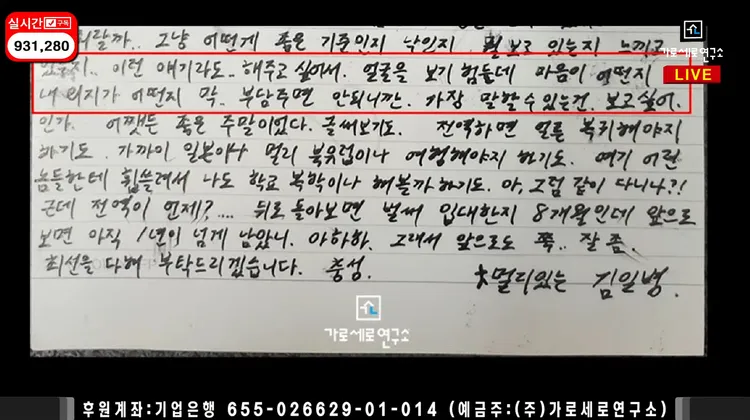 실시간 구독
931,280
가로세로연구소
LIVE
뭐랄까.. 그냥 어떤게 좋은 기준인지 낙인지 뭘 보고 있는지 느끼고
있는지.. 이런 얘기라도.. 해주고 싶어서. 얼굴을 보기 힘들데 마음이 어떤지
내 의지가 어떤지 막.. 부담주면 안되니깐. 가장 말할 수 있는건. 보고싶어.
인가. 어쨋든 좋은 주말이었다. 글써보기도. 전역하면 얼른 복귀해야지
하기도. 가까이 일본이나 멀리 북유럽이나 여행해야지 하기도. 여기 어린
놈들한테 휩쓸려서 나도 학교 복학이나 해볼까하기도. 아, 그럼 같이 다니나?!
근데 전역이 언제?.... 뒤로 돌아보면 벌써 입대한지 8개월인데 앞으로
보면 아직 1년이 넘게 남았니. 아하하. 그래서 앞으로도 쭉.. 잘 좀.
최선을 다해 부탁드리겠습니다. 충성.
멀리있는 김일병.
가로세로연구소
후원계좌:기업은행 655-026629-01-014 (예금주:(주)가로세로연구소)